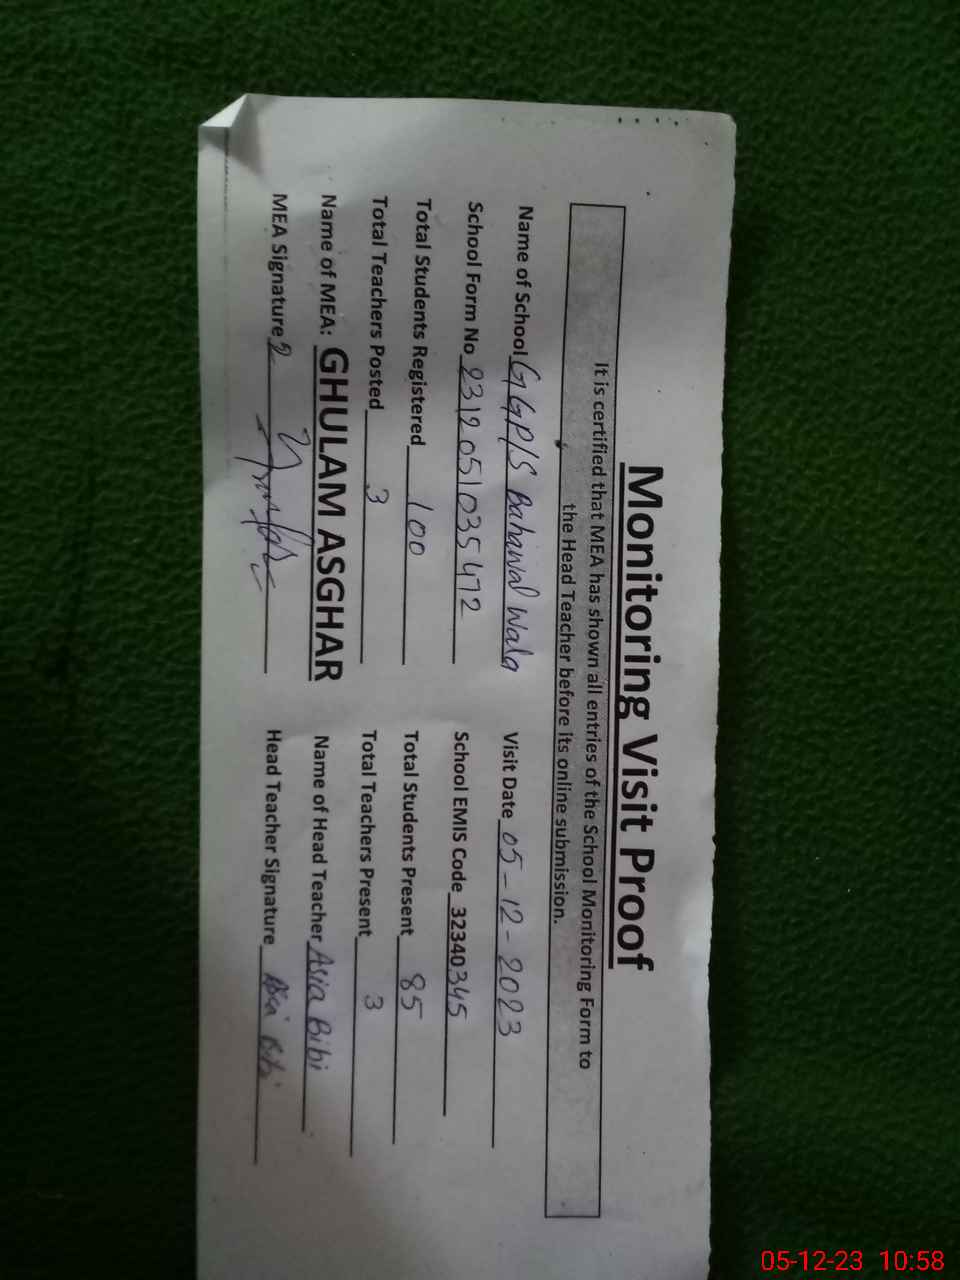 Monitoring Visit Proof
It is certified that MEA has shown all entries of the School Monitoring Form to
the Head Teacher before its online submission.
Name of School GGP/S Bahawal Wala Visit Date 05-12-2023
School Form No 2312051035472 School EMIS Code 32340345
Total Students Registered 100 Total Students Present 85
Total Teachers Posted 3 Total Teachers Present 3
Name of MEA: GHULAM ASGHAR Name of Head Teacher Asia Bibi
MEA Signature Head Teacher Signature Asia Bibi
05-12-23 10:58